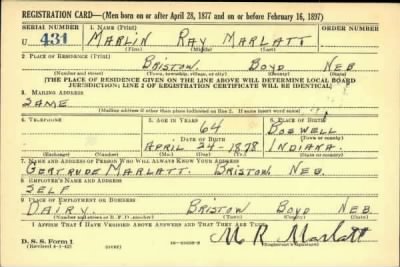 REGISTRATION CARD—(Men born on or after April 28, 1877 and on or before February 16, 1897)
SERIAL NUMBER 1. NAME (Print) ORDER NUMBER
U 431 MARLIN RAY MARLATT
(First) (Middle) (Last)
2. PLACE OF RESIDENCE (Print)
BRISTOW BOYD NEB
(Number and street) (Town, township, village, or city) (County) (State)
[THE PLACE OF RESIDENCE GIVEN ON THE LINE ABOVE WILL DETERMINE LOCAL BOARD
JURISDICTION; LINE 2 OF REGISTRATION CERTIFICATE WILL BE IDENTICAL]
3. MAILING ADDRESS
SAME
[Mailing address if other than place indicated on line 2. If same insert word same]
4. TELEPHONE 5. AGE IN YEARS 6. PLACE OF BIRTH
64 BOSWELL
DATE OF BIRTH (Town or county)
APRIL 24 - 1878 INDIANA.
(Exchange) (Number) (Mo.) (Day) (Yr.) (State or country)
7. NAME AND ADDRESS OF PERSON WHO WILL ALWAYS KNOW YOUR ADDRESS
GERTRUDE MARLATT. BRISTOW. NEB.
8. EMPLOYER'S NAME AND ADDRESS
SELF
9. PLACE OF EMPLOYMENT OR BUSINESS
DAIRY. BRISTOW BOYD NEB
(Number and street or R. F. D. number) (Town) (County) (State)
I AFFIRM THAT I HAVE VERIFIED ABOVE ANSWERS AND THAT THEY ARE TRUE.
D. S. S. Form 1 M R Marlatt
(Revised 4-1-42) (over) (Registrant's signature)